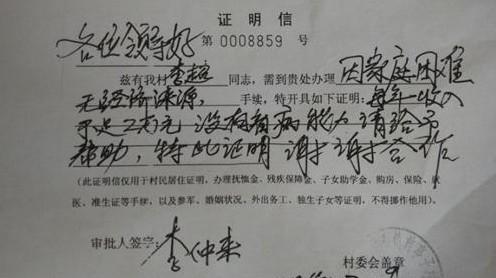 证明信
各位领导好 第 0008859 号
兹有我村李超同志，需到贵处办理 因家庭困难
无经济来源，手续，特开具如下证明：每年收入
不足二万元 没有看病能力 请给予
帮助，特此证明 谢谢合作
(此证明信仅用于村民居住证明，办理抚恤金、残疾保障金、子女助学金、购房、保险、就
医、准生证等手续，以及参军、婚姻状况、外出务工、独生子女等证明，不得挪作他用)。
审批人签字：李仲来
村委会盖章